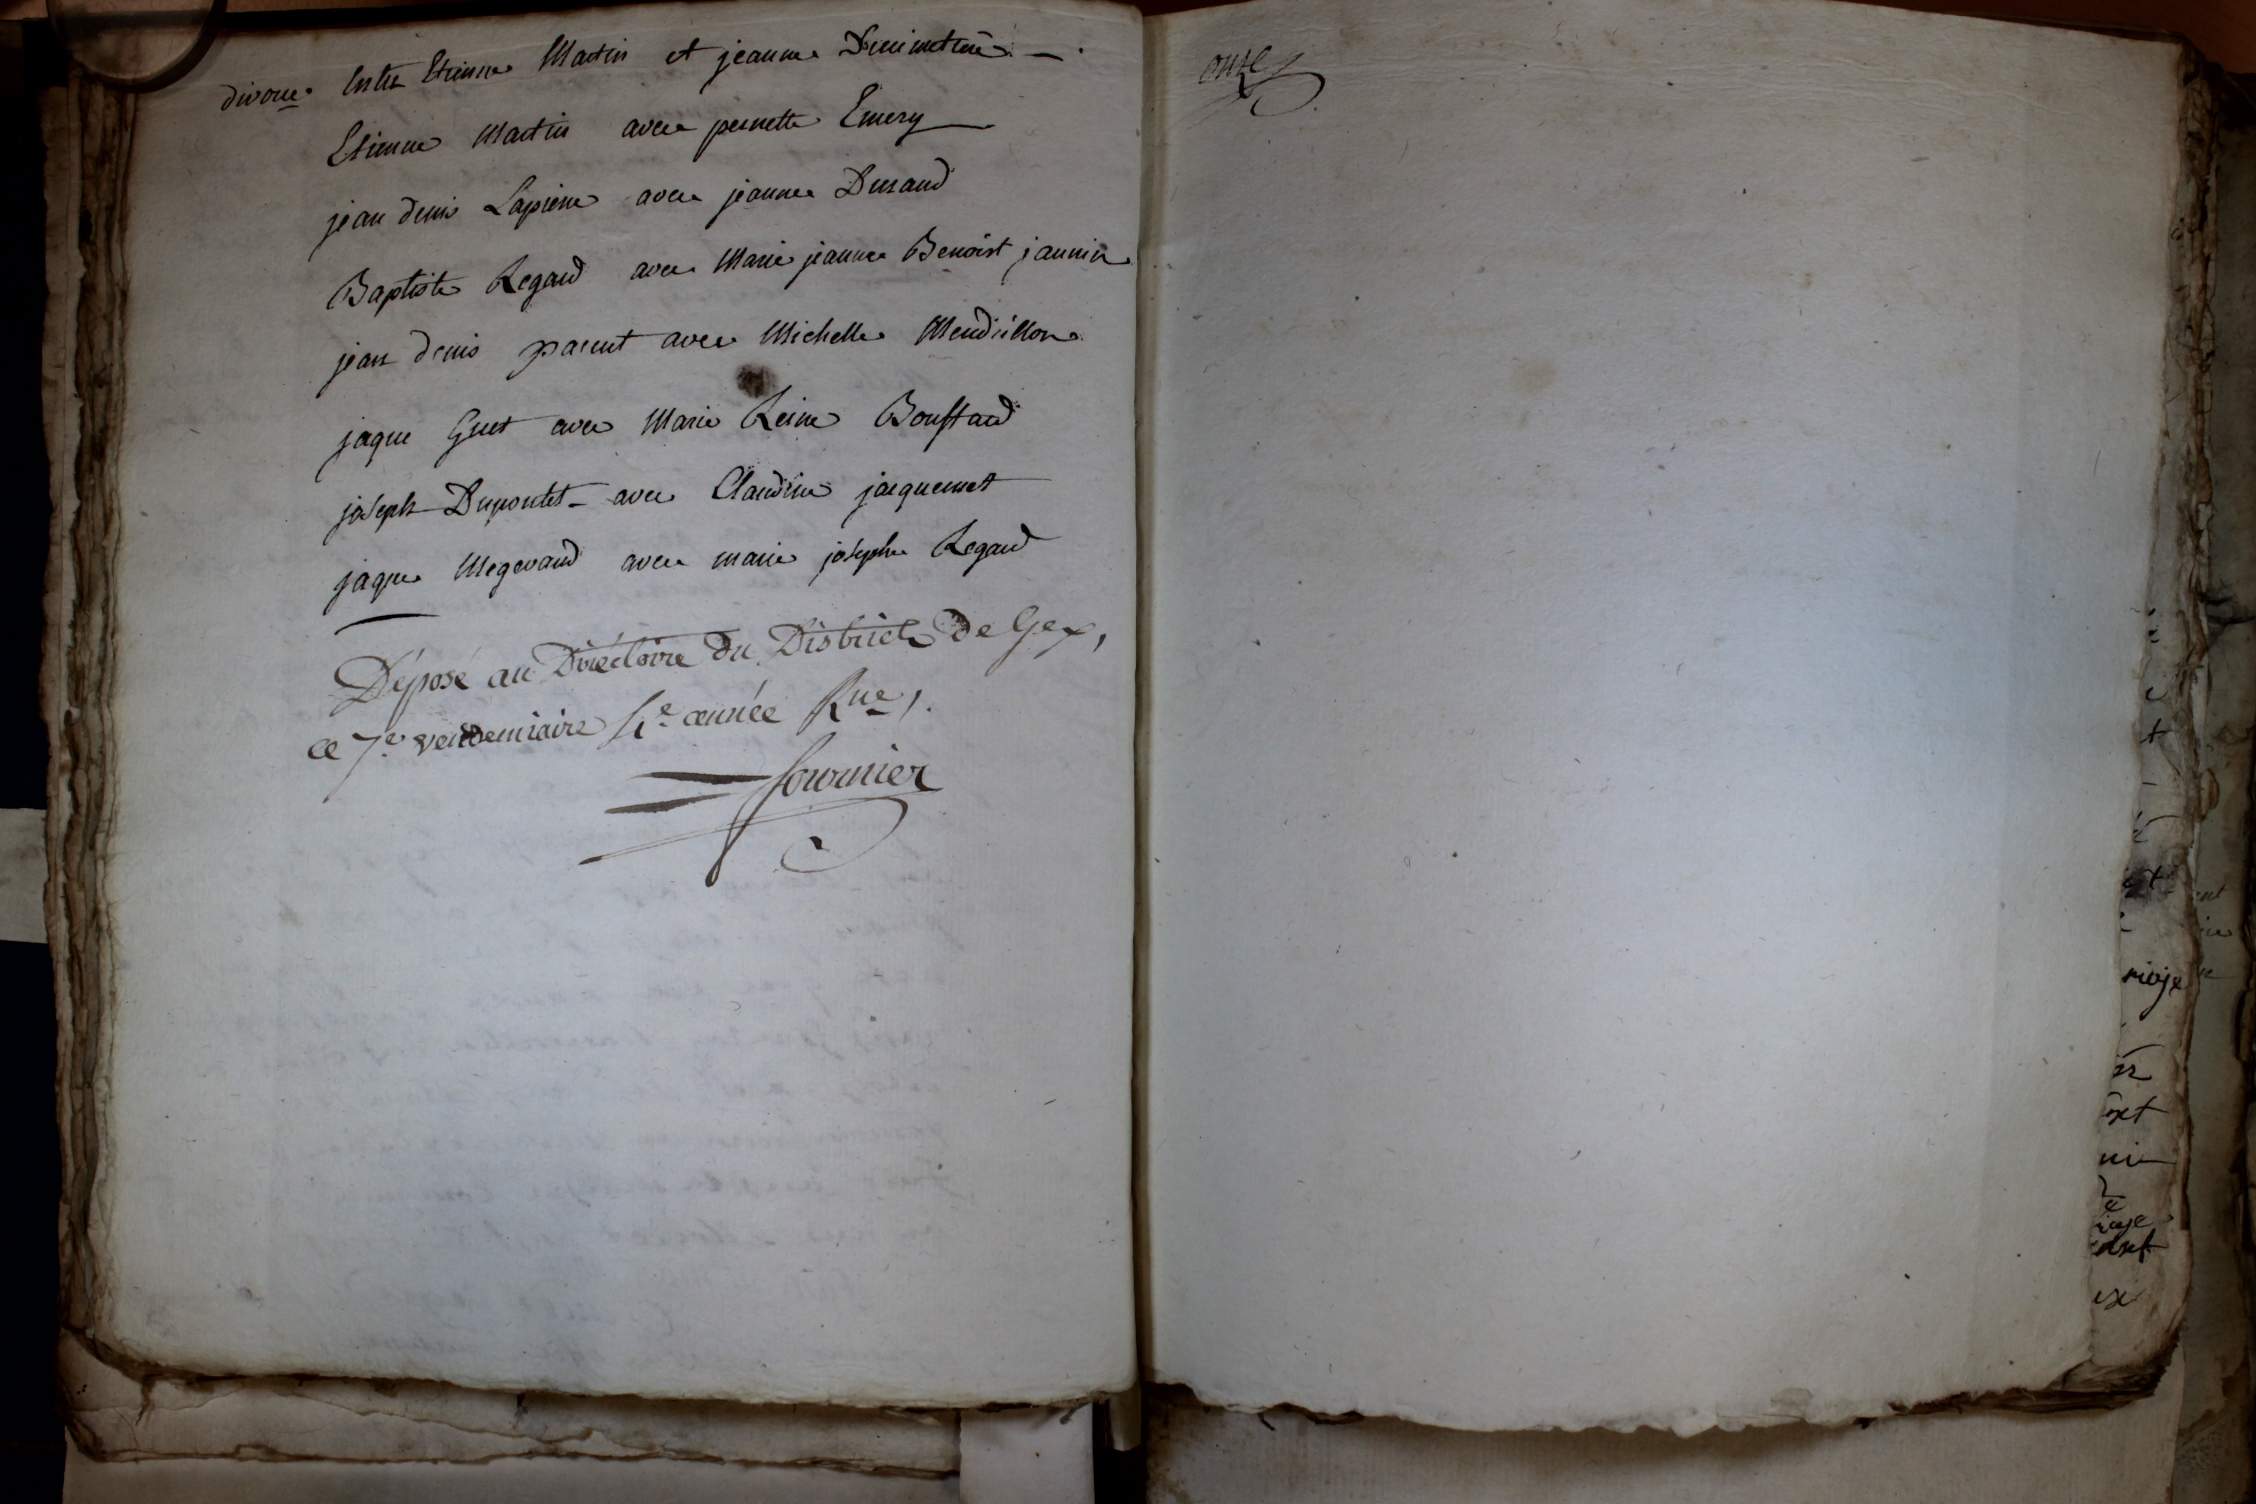 divorce entre Etienne Martin et jeanne
Etienne Martin avec pernette Emery
jean denis Lapierre avec jeanne Durand
Baptiste Regard avec Marie jeanne Benoist jannin
jean denis parent avec Michelle Mendrillon
jaque Gret avec Marie Reine Bouffard
joseph Dupontet avec Claudine jacquemet
jaque Megevand avec marie josephe Regard
Déposé au Diréctoire du District de Gex,
ce 7e vendemiaire 4e année Rne,.
fournier
onze